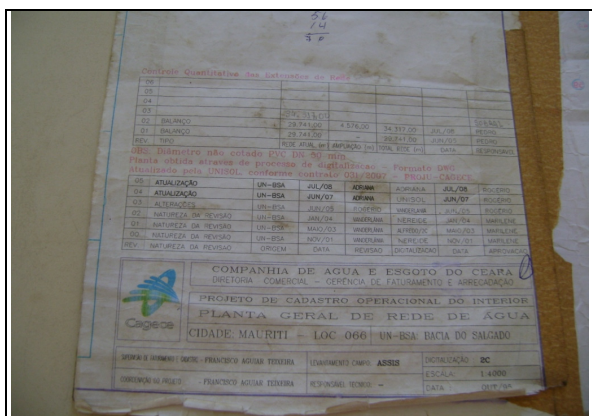 56
14
70
Controle Quantitativo das Extensões de Rede
06
05
04
03
02 BALANÇO 29.741,00 4.576,00 34.317,00 JUL/08 PEDRO
01 BALANÇO 29.741,00 - 29.741,00 JUN/07 PEDRO
REV. TIPO REDE ATUAL (m) AMPLIAÇÃO (m) TOTAL REDE (m) DATA RESPONSÁVEL
OBS: Diâmetro não cotado PVC DN 50 mm
Planta obtida através de processo de digitalização - Formato DWG
atualizado pela UNISOL conforme contrato 031/2007 - PROJU-CAGECE
05 ATUALIZAÇÃO UN-BSA JUL/08 ADRIANA ADRIANA JUL/08 ROGÉRIO
04 ATUALIZAÇÃO UN-BSA JUN/07 ADRIANA UNISOL JUN/07 ROGÉRIO
03 ALTERAÇÕES UN-BSA JUN/05 ROGÉRIO VANDERLÂNIA JUN/05 ROGÉRIO
02 NATUREZA DA REVISÃO UN-BSA JAN/04 VANDERLÂNIA NEREIDE JAN/04 MARILENE
01 NATUREZA DA REVISÃO UN-BSA MAIO/03 VANDERLÂNIA MAIO/03 MARILENE
00 NATUREZA DA REVISÃO UN-BSA NOV/01 VANDERLÂNIA NEREIDE NOV/01 MARILENE
REV. NATUREZA DA REVISÃO ORIGEM DATA REVISÃO DIGITALIZAÇÃO DATA APROVAÇÃO
COMPANHIA DE AGUA E ESGOTO DO CEARA
DIRETORIA COMERCIAL - GERÊNCIA DE FATURAMENTO E ARRECADAÇÃO
PROJETO DE CADASTRO OPERACIONAL DO INTERIOR
PLANTA GERAL DE REDE DE ÁGUA
Cagece
CIDADE: MAURITI - LOC 066 UN-BSA: BACIA DO SALGADO
FRANCISCO AGUIAR TEIXEIRA LEVANTAMENTO CAMPO: ASSIS DIGITALIZAÇÃO: 2C
ESCALA: 1:4000
COORDENAÇÃO DO PROJETO: FRANCISCO AGUIAR TEIXEIRA RESPONSÁVEL TÉCNICO: - DATA: